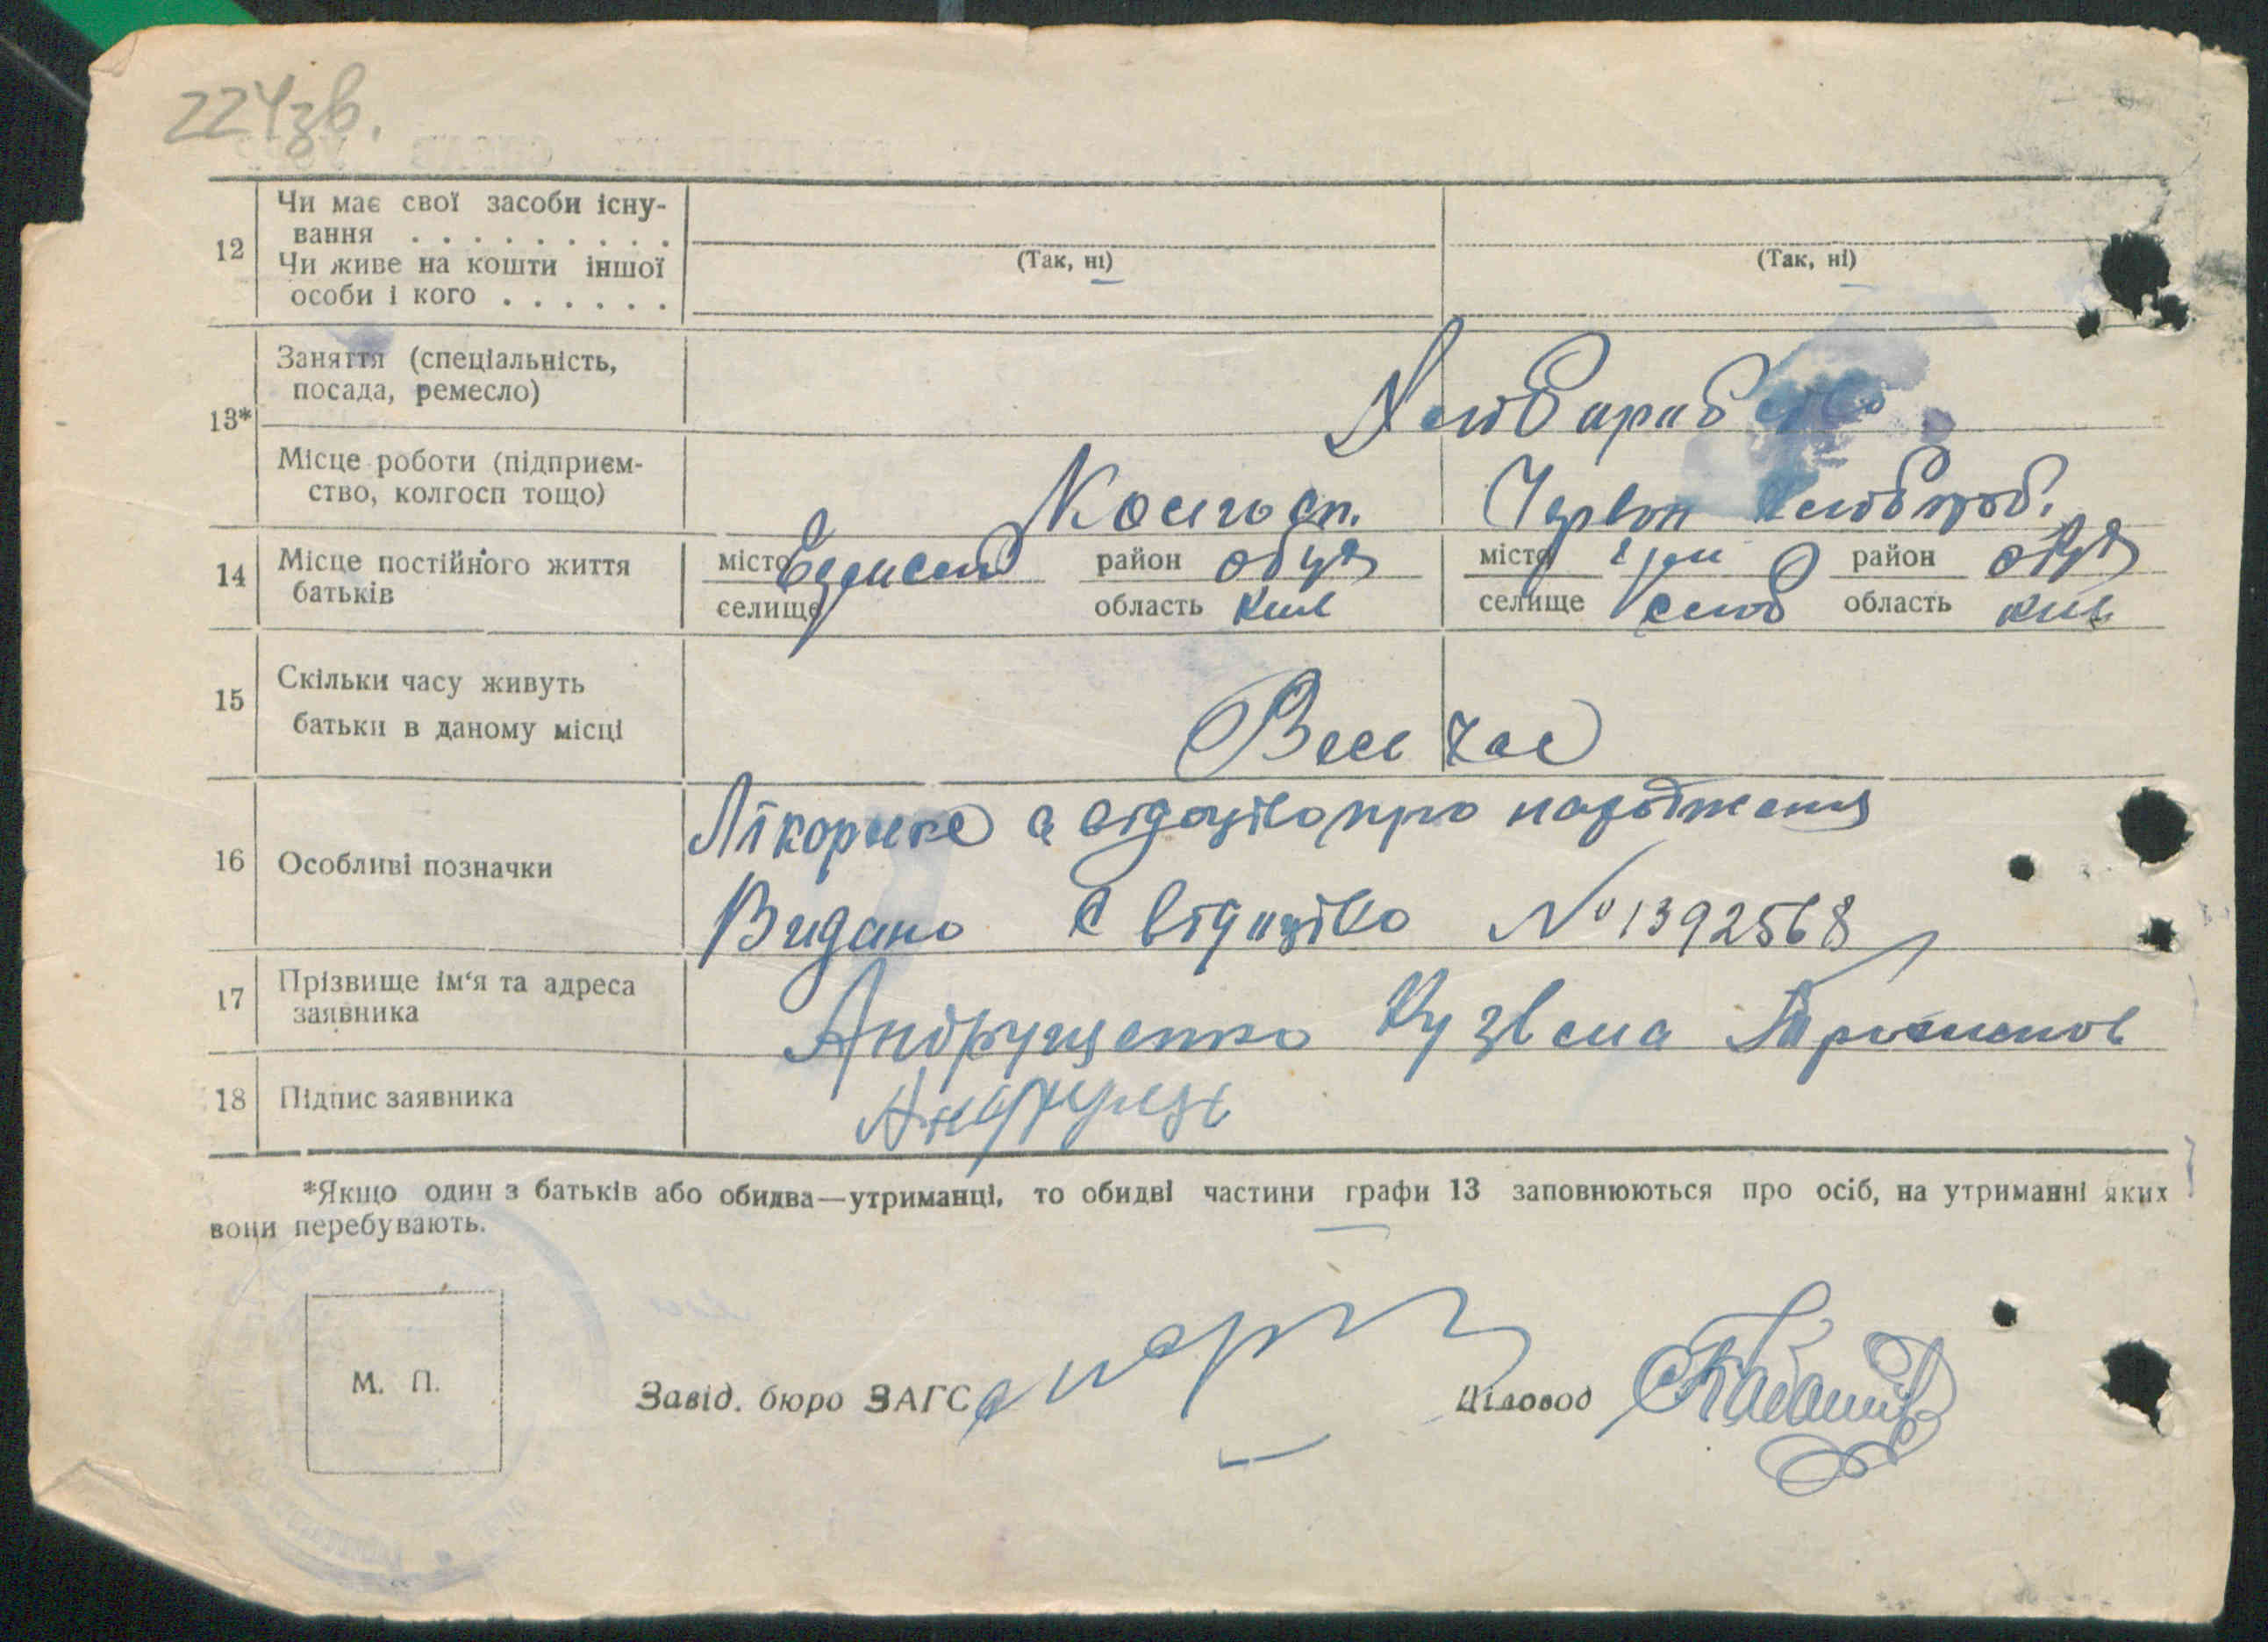 224зв.
12 Чи має свої засоби існу-
вання . . . . . . . . .
Чи живе на кошти іншої
особи і кого . . . . . .
(Так, ні) (Так, ні)
13* Заняття (спеціальність,
посада, ремесло)
Місце роботи (підприєм-
ство, колгосп тощо) Колгосп. Червон Хлібороб.
14 Місце постійного життя
батьків
місто район область Київ
селище
місто район область Київ
селище
15 Скільки часу живуть
батьки в даному місці Весь час
16 Особливі позначки Лікорське свідоцтво про народження
Видано Свідоцтво № 1392568
17 Прізвище ім‘я та адреса
заявника Андрущенко
18 Підпис заявника Андрущ
*Якщо один з батьків або обидва—утриманці, то обидві частини графи 13 заповнюються про осіб, на утриманні яких
вони перебувають.
М. П.
Завід. бюро ЗАГС Діловод